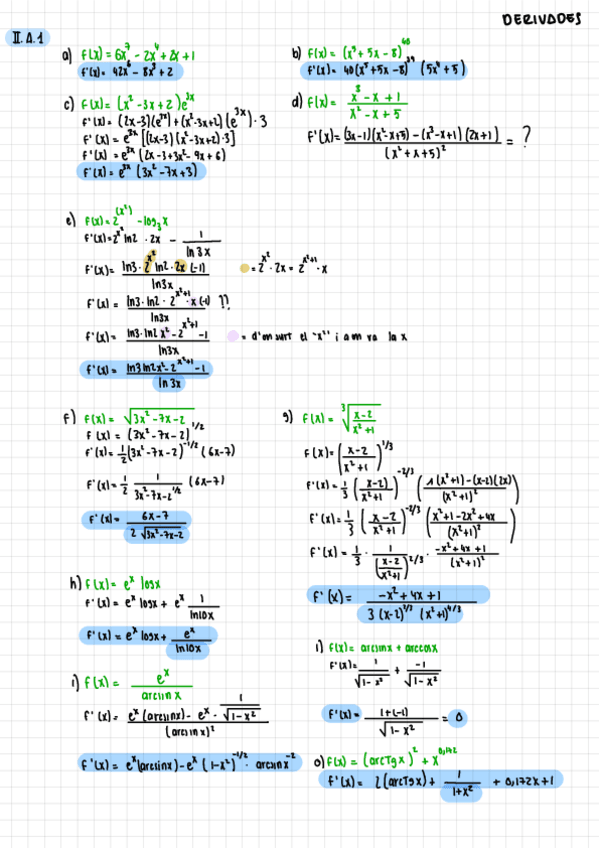 DERIVADES
II.A.1
a) f(x) = 6x⁷ - 2x⁴ + 2x + 1
f'(x) = 42x⁶ - 8x³ + 2
b) f(x) = (x⁵ + 5x - 8)⁴⁰
f'(x) = 40(x⁵ + 5x - 8)³⁹ (5x⁴ + 5)
c) f(x) = (x² - 3x + 2)e³ˣ
f'(x) = (2x-3)(e³ˣ) + (x²-3x+2)(e³ˣ)·3
f'(x) = e³ˣ [(2x-3)(x²-3x+2)·3]
f'(x) = e³ˣ (2x-3+3x²-9x+6)
f'(x) = e³ˣ (3x²-7x+3)
d) f(x) = x³ - x + 1 / x² - x + 5
f'(x) = (3x-1)(x²-x+5) - (x³-x+1)(2x+1) / (x²+x+5)² = ?
e) f(x) = 2^(x²) - log₃x
f'(x) = 2^x² ln2 · 2x - 1 / ln3x
f'(x) = ln3·2^x² ln2·2x (-1) / ln3x
= 2^x² · 2x = 2^x²+1 · x
f'(x) = ln3·ln2·2^x²+1 · x (-1) / ln3x ??
f'(x) = ln3·ln2 x² - 2^x²+1 - 1 / ln3x
= d'on surt el "x²" i a on va la x
f'(x) = ln3 ln2 x² - 2^x²+1 - 1 / ln3x
f) f(x) = √3x² - 7x - 2
f(x) = (3x² - 7x - 2)^1/2
f'(x) = 1/2 (3x² - 7x - 2)^-1/2 (6x-7)
f'(x) = 1/2 · 1 / 3x²-7x-2^1/2 (6x-7)
f'(x) = 6x-7 / 2 √3x²-7x-2
g) f(x) = ³√x-2 / x²+1
f(x) = (x-2 / x²+1)^1/3
f'(x) = 1/3 (x-2 / x²+1)^-2/3 (1(x²+1) - (x-2)(2x) / (x²+1)²)
f'(x) = 1/3 (x-2 / x²+1)^-2/3 (x²+1-2x²+4x / (x²+1)²)
f'(x) = 1/3 · 1 / (x-2 / x²+1)^2/3 · -x²+4x+1 / (x²+1)²
f'(x) = -x²+4x+1 / 3(x-2)^2/3 (x²+1)^4/3
h) f(x) = eˣ logx
f'(x) = eˣ logx + eˣ 1 / ln10x
f'(x) = eˣ logx + eˣ / ln10x
i) f(x) = eˣ / arcsin x
f'(x) = eˣ (arcsinx) - eˣ · 1 / √1-x² / (arcsin x)²
f'(x) = eˣ(arcsinx) - eˣ (1-x²)^-1/2 · arcsinx⁻²
l) f(x) = arcsinx + arccosx
f'(x) = 1 / √1-x² + -1 / √1-x²
f'(x) = 1+(-1) / √1-x² = 0
o) f(x) = (arcTgx)² + x^0,172
f'(x) = 2(arcTgx) + 1 / 1+x² + 0,172x+1